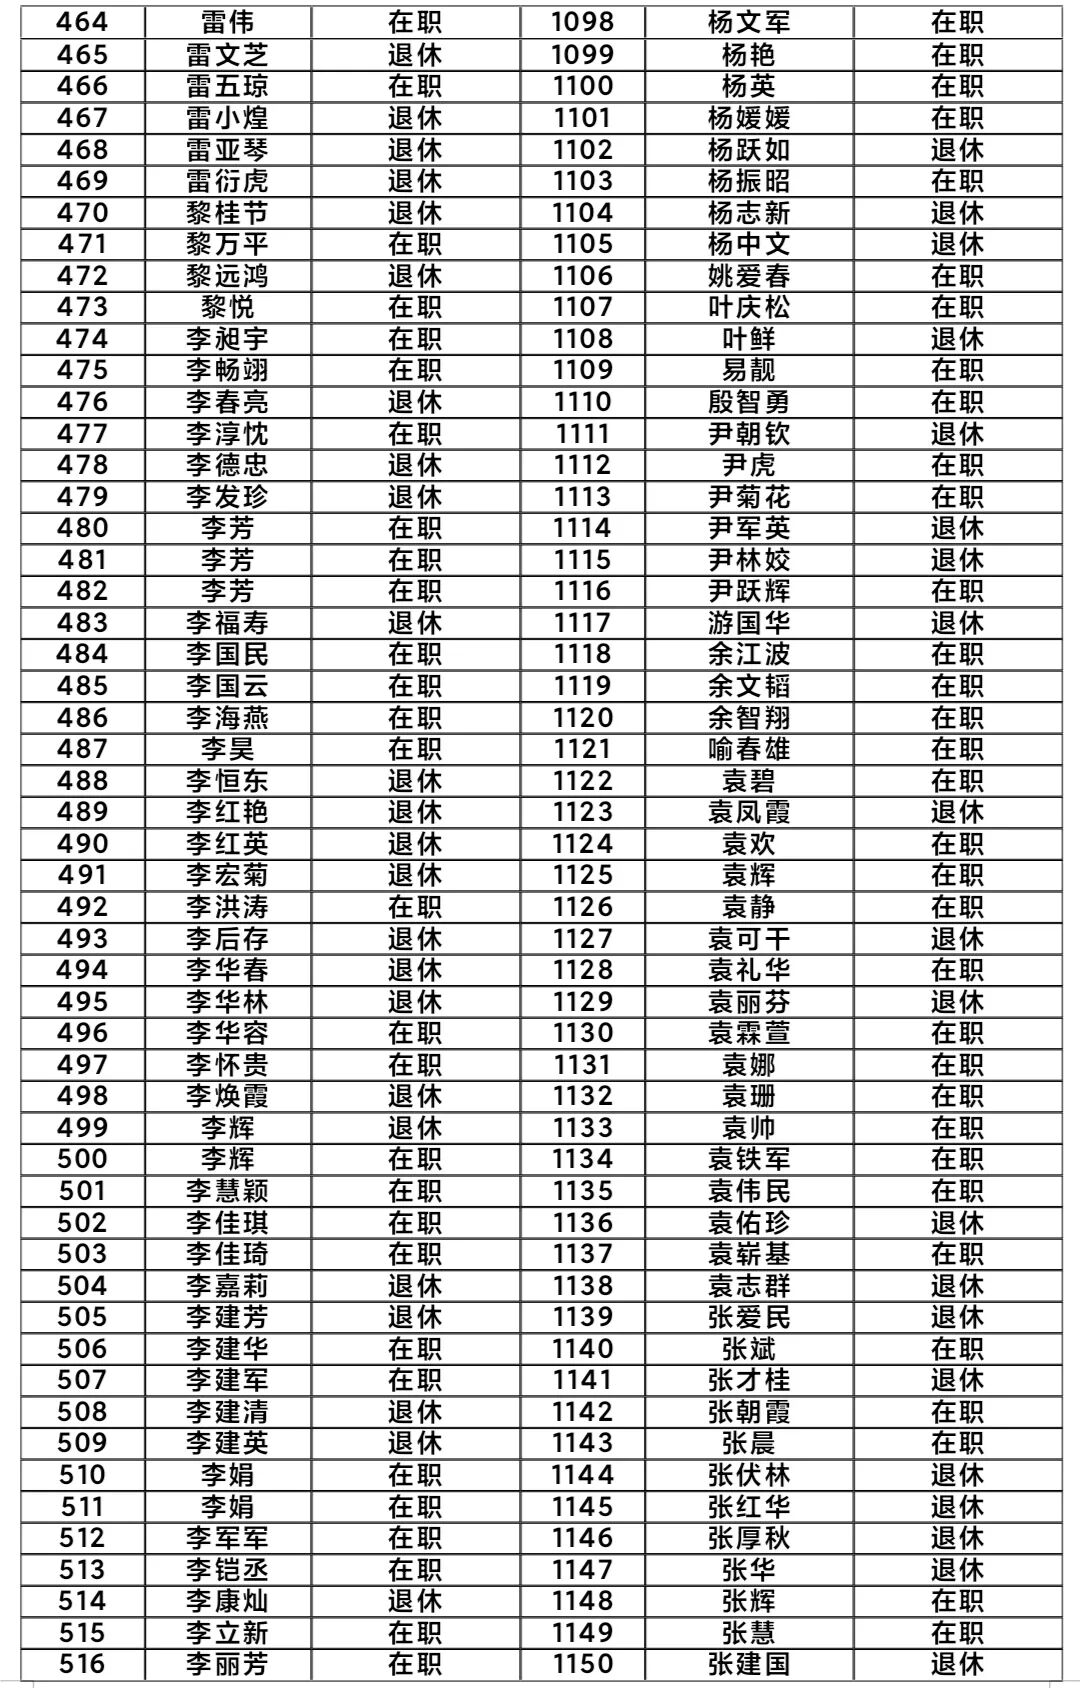 464 雷伟 在职 1098 杨文军 在职
465 雷文芝 退休 1099 杨艳 在职
466 雷五琼 在职 1100 杨英 在职
467 雷小煌 退休 1101 杨媛媛 在职
468 雷亚琴 退休 1102 杨跃如 退休
469 雷衍虎 退休 1103 杨振昭 在职
470 黎桂节 退休 1104 杨志新 退休
471 黎万平 在职 1105 杨中文 退休
472 黎远鸿 退休 1106 姚爱春 在职
473 黎悦 在职 1107 叶庆松 在职
474 李昶宇 在职 1108 叶鲜 退休
475 李畅翊 在职 1109 易靓 在职
476 李春亮 退休 1110 殷智勇 在职
477 李淳忱 在职 1111 尹朝钦 退休
478 李德忠 退休 1112 尹虎 在职
479 李发珍 退休 1113 尹菊花 在职
480 李芳 在职 1114 尹军英 退休
481 李芳 在职 1115 尹林姣 退休
482 李芳 在职 1116 尹跃辉 在职
483 李福寿 退休 1117 游国华 退休
484 李国民 在职 1118 余江波 在职
485 李国云 在职 1119 余文韬 在职
486 李海燕 在职 1120 余智翔 在职
487 李昊 在职 1121 喻春雄 在职
488 李恒东 退休 1122 袁碧 在职
489 李红艳 退休 1123 袁凤霞 退休
490 李红英 退休 1124 袁欢 在职
491 李宏菊 退休 1125 袁辉 在职
492 李洪涛 在职 1126 袁静 在职
493 李后存 退休 1127 袁可干 退休
494 李华春 退休 1128 袁礼华 在职
495 李华林 退休 1129 袁丽芬 退休
496 李华容 在职 1130 袁霖萱 在职
497 李怀贵 在职 1131 袁娜 在职
498 李焕霞 退休 1132 袁珊 在职
499 李辉 退休 1133 袁帅 在职
500 李辉 在职 1134 袁铁军 在职
501 李慧颖 在职 1135 袁伟民 在职
502 李佳琪 在职 1136 袁佑珍 退休
503 李佳琦 在职 1137 袁崭基 在职
504 李嘉莉 退休 1138 袁志群 退休
505 李建芳 退休 1139 张爱民 退休
506 李建华 在职 1140 张斌 在职
507 李建军 在职 1141 张才桂 退休
508 李建清 退休 1142 张朝霞 在职
509 李建英 退休 1143 张晨 在职
510 李娟 在职 1144 张伏林 退休
511 李娟 在职 1145 张红华 退休
512 李军军 在职 1146 张厚秋 退休
513 李铠丞 在职 1147 张华 退休
514 李康灿 退休 1148 张辉 在职
515 李立新 在职 1149 张慧 在职
516 李丽芳 在职 1150 张建国 退休